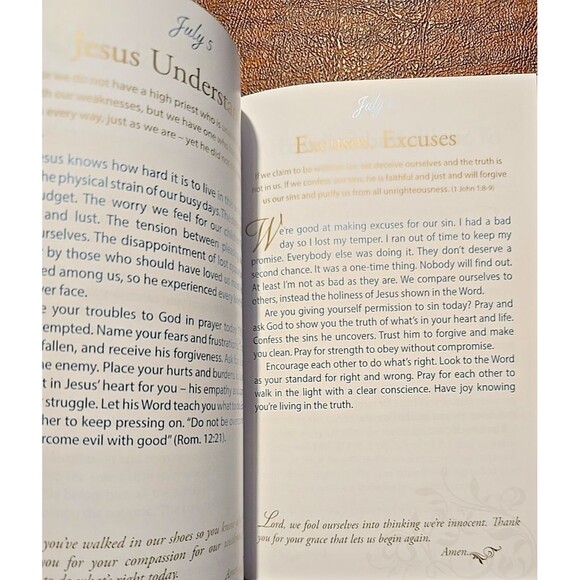 July 5
Jesus Understa
we do not have a high priest who is
th our weaknesses, but we have one who
every way, just as we are – yet he did not
esus knows how hard it is to live in this
the physical strain of our busy days. The
udget. The worry we feel for our child
and lust. The tension between
urselves. The disappointment of lost
by those who should have loved us
ed among us, so he experienced every
er face.
e your troubles to God in prayer today
empted. Name your fears and frustrations
fallen, and receive his forgiveness. Ask
he enemy. Place your hurts and burdens
t in Jesus' heart for you – his empathy
r struggle. Let his Word teach you what to
her to keep pressing on. "Do not be over
ercome evil with good" (Rom. 12:21).
you've walked in our shoes so you know
you for your compassion for our
to do what's right today.
Amen
July
Excuses, Excuses
If we claim to be without sin, we deceive ourselves and the truth is
not in us. If we confess our sins, he is faithful and just and will forgive
us our sins and purify us from all unrighteousness. (1 John 1:8-9)
We're good at making excuses for our sin. I had a bad
day so I lost my temper. I ran out of time to keep my
promise. Everybody else was doing it. They don't deserve a
second chance. It was a one-time thing. Nobody will find out.
At least I'm not as bad as they are. We compare ourselves to
others, instead the holiness of Jesus shown in the Word.
Are you giving yourself permission to sin today? Pray and
ask God to show you the truth of what's in your heart and life.
Confess the sins he uncovers. Trust him to forgive and make
you clean. Pray for strength to obey without compromise.
Encourage each other to do what's right. Look to the Word
as your standard for right and wrong. Pray for each other to
walk in the light with a clear conscience. Have joy knowing
you're living in the truth.
Lord, we fool ourselves into thinking we're innocent. Thank
you for your grace that lets us begin again.
Amen.